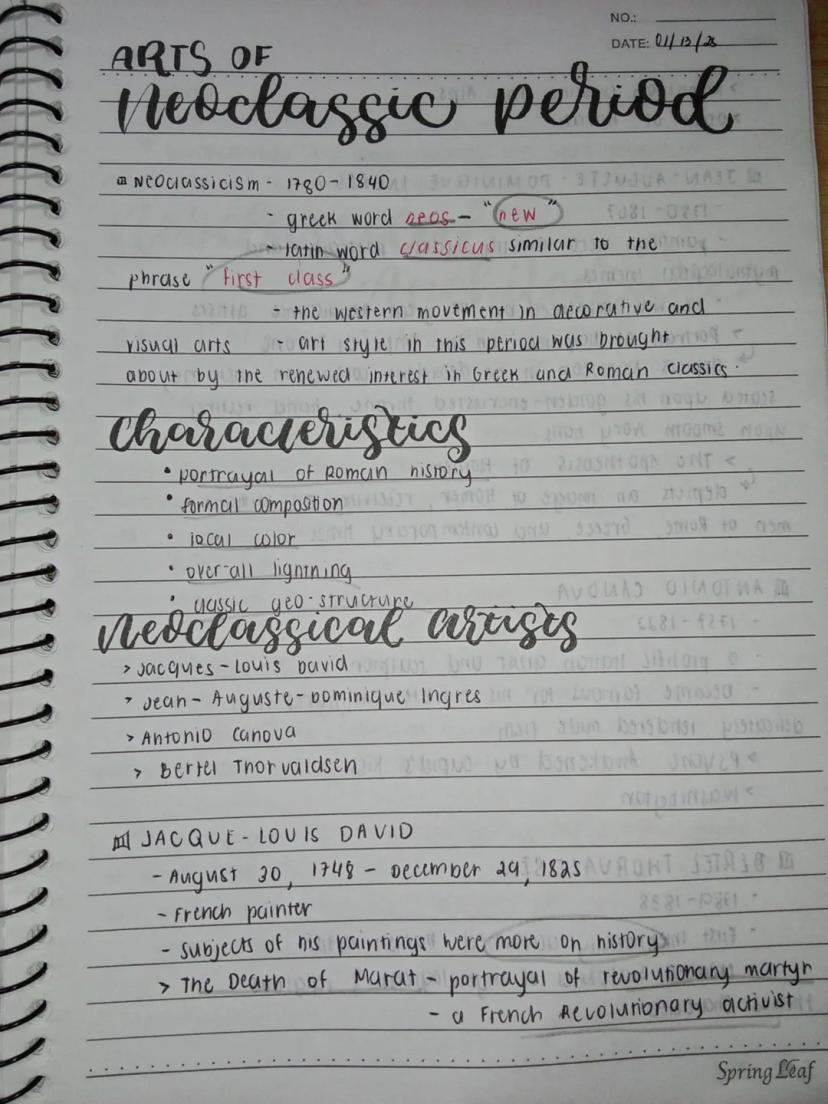 NO.:
DATE: 01/13/25
ARTS OF
neoclassic period
Neoclassicism - 1780 - 1840
- greek word neos - "new"
- latin word classicus similar to the
phrase "first class"
- the western movement in decorative and
visual arts - art style in this period was brought
about by the renewed interest in Greek and Roman classics.
characteristics
• portrayal of Roman history
• formal composition
• local color
• over-all lightning
• classic geo-structure
neoclassical artists
> Jacques-Louis David
> Jean-Auguste-Dominique Ingres
> Antonio Canova
> Bertel Thorvaldsen
JACQUE-LOUIS DAVID
- August 30, 1748 - December 29, 1825
- French painter
- subjects of his paintings were more on history
> The Death of Marat - portrayal of revolutionary martyr
- a French Revolutionary activist
Spring Leaf